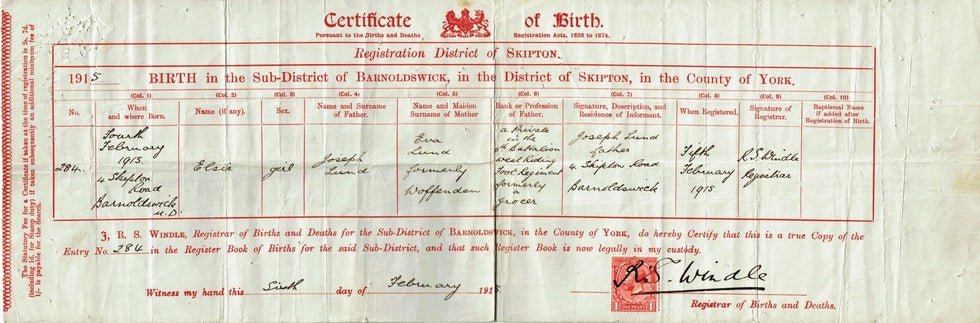 Certificate of Birth.
Pursuant to the Births and Deaths Registration Acts, 1836 to 1874.
Registration District of SKIPTON.
1915 BIRTH in the Sub-District of BARNOLDSWICK, in the District of SKIPTON, in the County of YORK.
(Col. 1) (Col. 2) (Col. 3) (Col. 4) (Col. 5) (Col. 6) (Col. 7) (Col. 8) (Col. 9) (Col. 10)
No.
When
and where Born.
Name (if any).
Sex.
Name and Surname
of Father.
Name and Maiden
Surname of Mother
Rank or Profession
of Father.
Signature, Description, and
Residence of Informant.
When Registered.
Signature of
Registrar.
Baptismal Name
if added after
Registration of Birth.
284.
Fourth
February
1915.
4 Skipton
Road
Barnoldswick
U.D.
Elsie
girl
Joseph
Lund
Eva
Lund
formerly
Woffenden
a Private
in the
Battalion
West Riding
Foot Regiment
formerly
a
Grocer
Joseph Lund
father
4 Skipton Road
Barnoldswick
Fifth
February
1915.
R.S. Windle
Registrar
I, R. S. WINDLE, Registrar of Births and Deaths for the Sub-District of BARNOLDSWICK, in the County of YORK, do hereby Certify that this is a true Copy of the
Entry No. 284 in the Register Book of Births for the said Sub-District, and that such Register Book is now legally in my custody.
Witness my hand this Sixth day of February 1915.
R.S. Windle
Registrar of Births and Deaths.
The Statutory Fee for a Certificate if taken at the time of registration is 2s. 7d.
(including 1d. for Stamp duty) if taken subsequently an additional minimum fee of
1/- is payable for the Search.